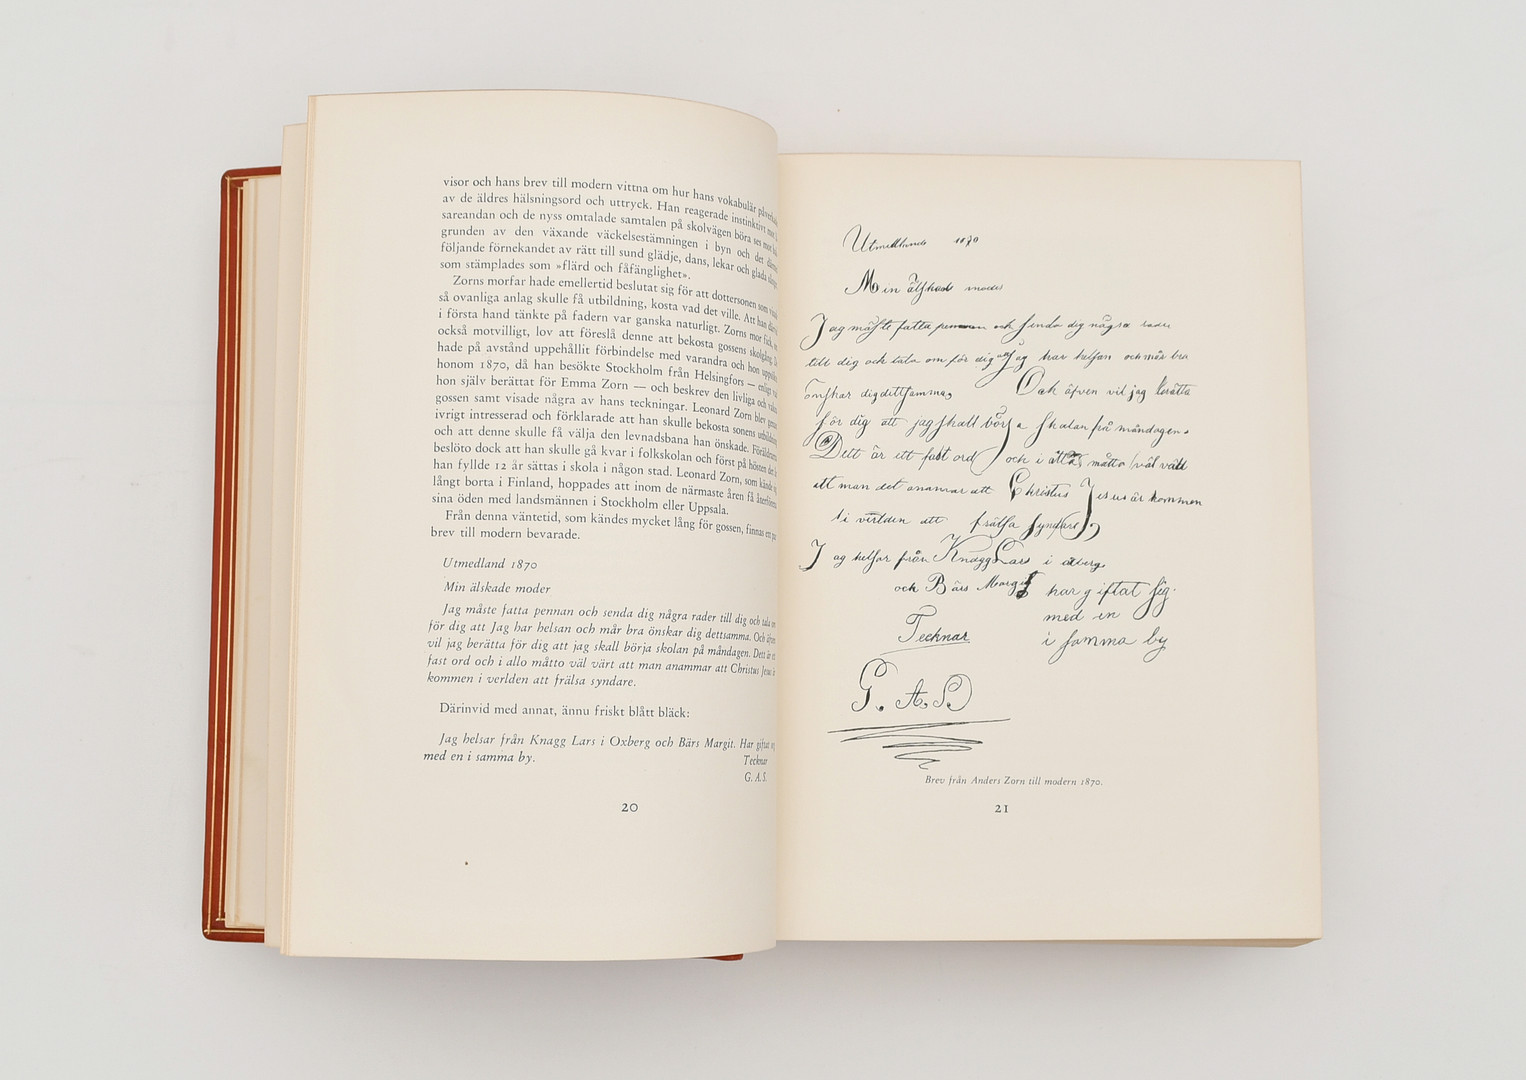 visor och hans brev till modern vittna om hur hans vokabulär
av de äldres hälsningsord och uttryck. Han reagerade instinktivt
sareandan och de nyss omtalade samtalen på skolvägen böra ses mot
grunden av den växande väckelsestämningen i byn och det
följande förnekandet av rätt till sund glädje, dans, lekar och glada
som stämplades som »flärd och fåfänglighet».
Zorns morfar hade emellertid beslutat sig för att dottersonen som
så ovanliga anlag skulle få utbildning, kosta vad det ville. Att han
i första hand tänkte på fadern var ganska naturligt. Zorns mor fick,
också motvilligt, lov att föreslå denne att bekosta gossens skolgång.
hade på avstånd uppehållit förbindelse med varandra och hon
honom 1870, då han besökte Stockholm från Helsingfors — enligt
hon själv berättat för Emma Zorn — och beskrev den livliga och
gossen samt visade några av hans teckningar. Leonard Zorn blev
ivrigt intresserad och förklarade att han skulle bekosta sonens utbildning
och att denne skulle få välja den levnadsbana han önskade. Föräldrarna
beslöto dock att han skulle gå kvar i folkskolan och först på hösten det
han fyllde 12 år sättas i skola i någon stad. Leonard Zorn, som kände
långt borta i Finland, hoppades att inom de närmaste åren få återförena
sina öden med landsmännen i Stockholm eller Uppsala.
Från denna väntetid, som kändes mycket lång för gossen, finnas ett par
brev till modern bevarade.
Utmedland 1870
Min älskade moder
Jag måste fatta pennan och senda dig några rader till dig och tala om
för dig att Jag har helsan och mår bra önskar dig dettsamma. Och äfven
vil jag berätta för dig att jag skall börja skolan på måndagen. Dett är ett
fast ord och i allo måtto väl värt att man anammar att Christus Jesus är
kommen i verlden att frälsa syndare.
Därinvid med annat, ännu friskt blått bläck:
Jag helsar från Knagg Lars i Oxberg och Bärs Margit. Har giftat sig
med en i samma by.
Tecknar
G. A. S.
20
Utmedland 1870
Min älskade moder
Jag måste fatta pennan och senda dig några rader
till dig och tala om för dig att Jag har helsan och mår bra
önskar dig dettsamma, Och äfven vil jag berätta
för dig att jag skall börja skolan på måndagen.
Dett är ett fast ord och i måtto väl värdt
att man det anamar att Christus Jesus är kommen
i verlden att frälsa syndare,
Jag helsar från Knagg Lars i
och Bärs Margit har giftat sig
med en
Tecknar i samma by
G. A. S.
Brev från Anders Zorn till modern 1870.
21